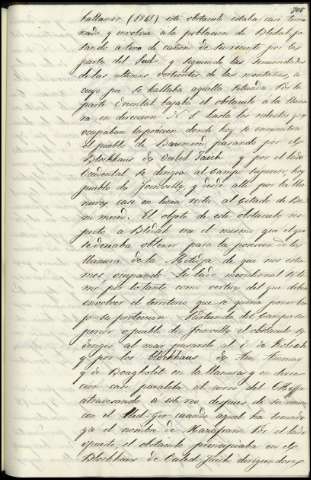 hallamos (1841) este obstante estaba casi termi
nado y envolvia á la poblacion de Blidah pa
sando a tiro de cañon de su recinto por la
parte del Sud y siguiendo las sinuosidades
de las ultimas vertientes de las montañas, a
cuyo pie se hallaba aquella situada. Por la
parte Oriental bajaba el obstaculo á la llanu
ra en direccion N. S. hasta los reductos que
ocupaban la posicion donde hoy se encuentra
el pueblo de Beramered pasando por el
Blockhaus de Oulad Yaich y por el lado
Occidental se dirigia al campo superior, hoy
pueblo de Joinville y desde alli por la lla
nura, casi en linea recta, al citado de Be
ramered. El objeto de este obstaculo res
pecto á Blidah era el mismo que el que
se deseaba obtener para la posesion de la
llanura de la Metidja de que nos esta
mos ocupando. Su lado meridional se to
mó por lo tanto como vertice del que debia
envolver el territorio que se queria poner ba
jo su proteccion. Partiendo del Campo su
perior ó pueblo de Joinville el obstaculo se
dirigia al mar pasando el de Koleah
y por los Blockhaus de
y de en la llanura y en direc
cion casi paralela al curso del Chiffa
atravesando á este rio, despues de su union
con el Oued-Ger cuando aquel ha tomado
ya el nombre de Mazafran. Por el lado
opuesto, el obstaculo principiaba en el
Blockhaus de Oulad Yaich dirigiendose